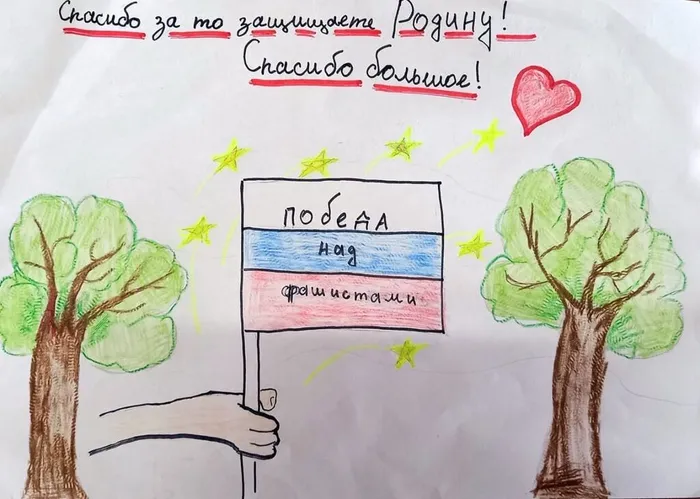 Спасибо за то защищаете Родину!
Спасибо большое!
ПОБЕДА
над
фашистами